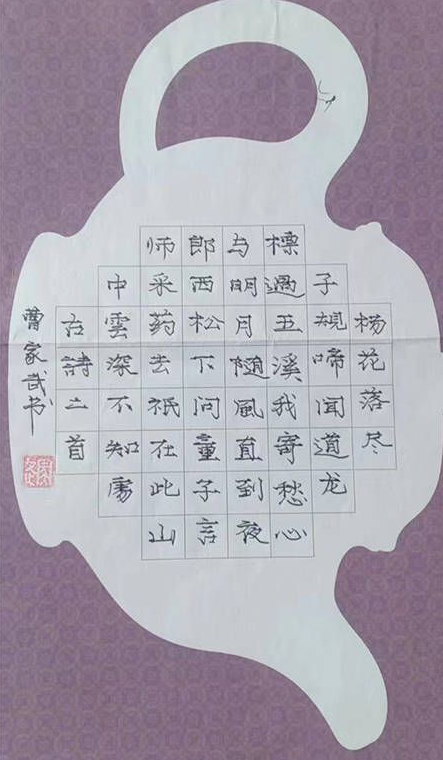 杨花落尽
子规啼闻道龙
標過五溪我寄愁心
与明月随風直到夜
郎西松下问童子言
师采药去祇在此山
中雲深不知處
古詩二首
曹家武书